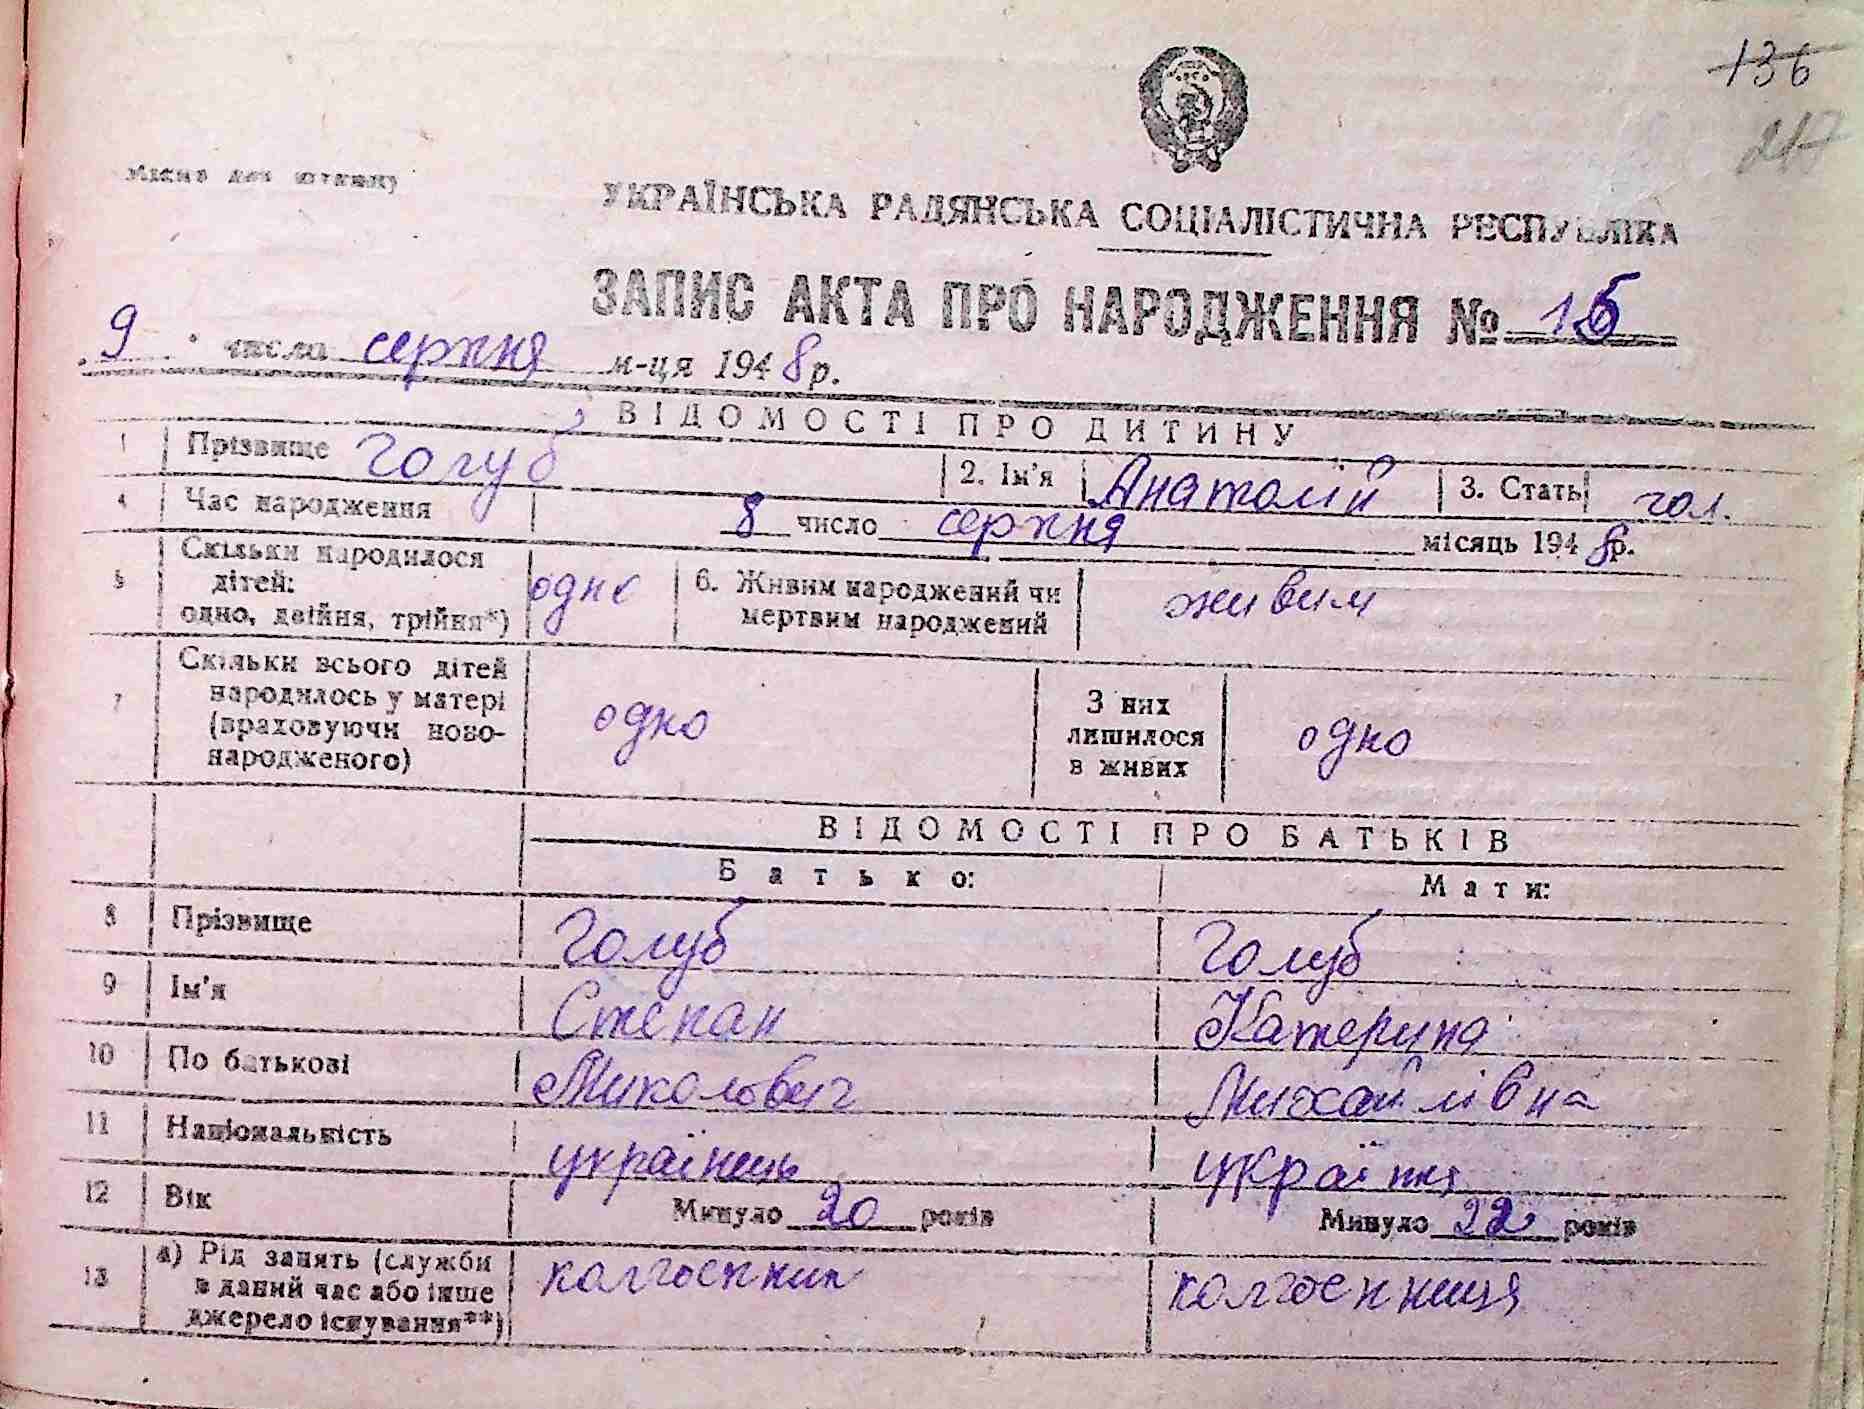 136
217
Місце для штампу
УКРАЇНСЬКА РАДЯНСЬКА СОЦІАЛІСТИЧНА РЕСПУБЛІКА
ЗАПИС АКТА ПРО НАРОДЖЕННЯ №
9 числа серпня м-ця 1948 р.
ВІДОМОСТІ ПРО ДИТИНУ
1 Прізвище Голуб 2. Ім'я Анатолій 3. Стать чол.
4 Час народження 8 число серпня місяць 1948 р.
5 Скільки народилося дітей: одно, двійня, трійня*) одне 6. Живим народжений чи мертвим народжений живим
7 Скільки всього дітей народилось у матері (враховуючи новонародженого) одно З них лишилося в живих одно
ВІДОМОСТІ ПРО БАТЬКІВ
Батько: Мати:
8 Прізвище Голуб Голуб
9 Ім'я Степан Катерина
10 По батькові Миколович Михайлівна
11 Національність українець українка
12 Вік Минуло 20 років Минуло 22 років
13 а) Рід занять (служби в даний час або інше джерело існування**) колгоспник колгоспниця